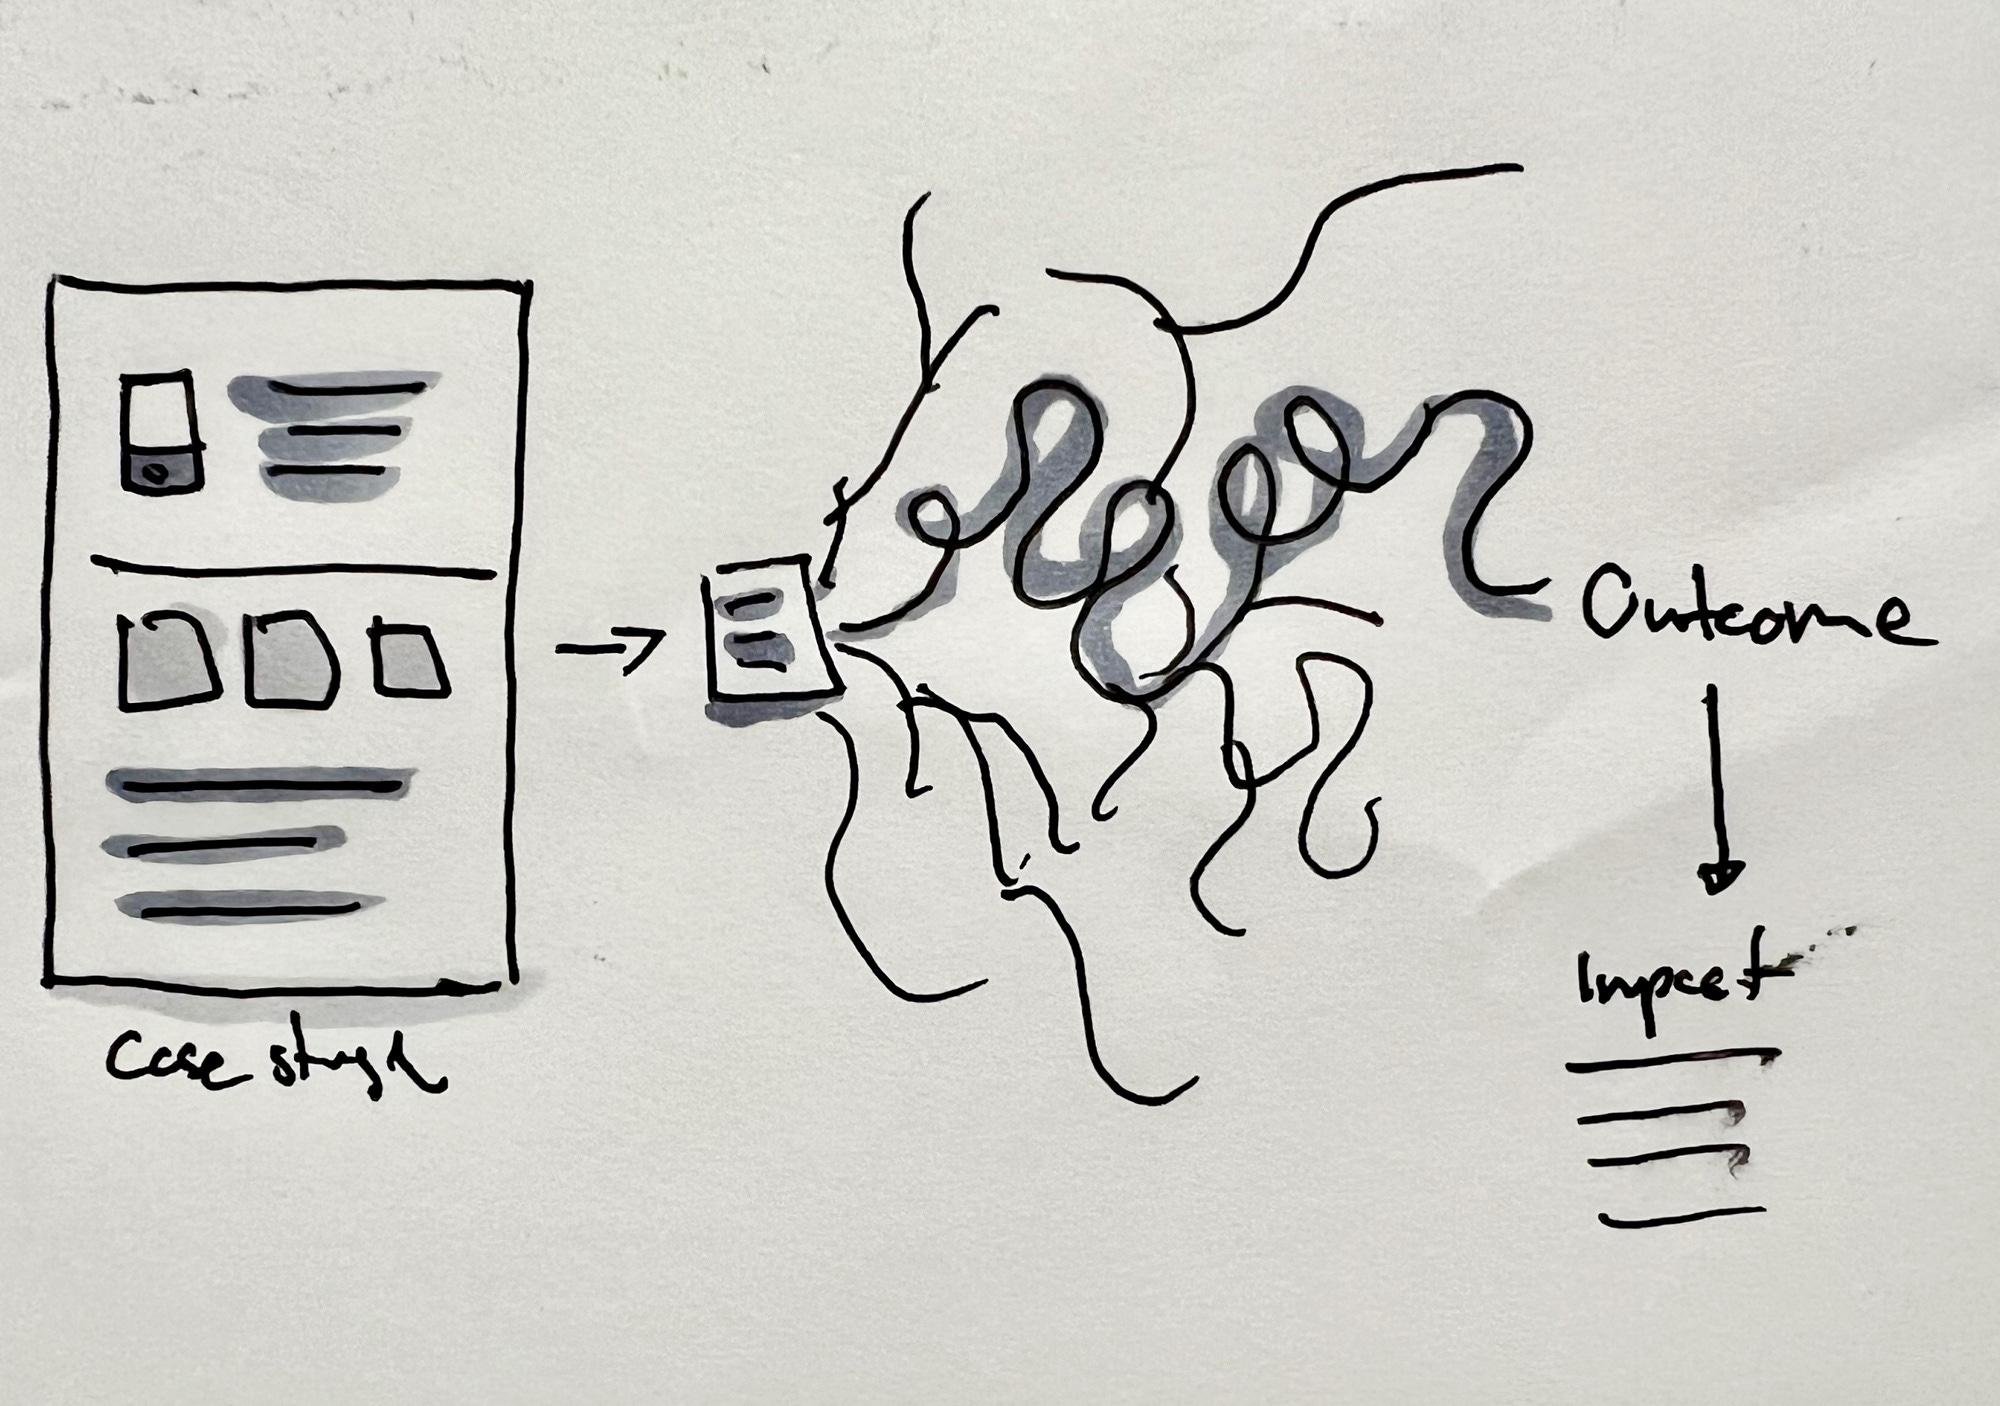 Case study
Outcome
Impact